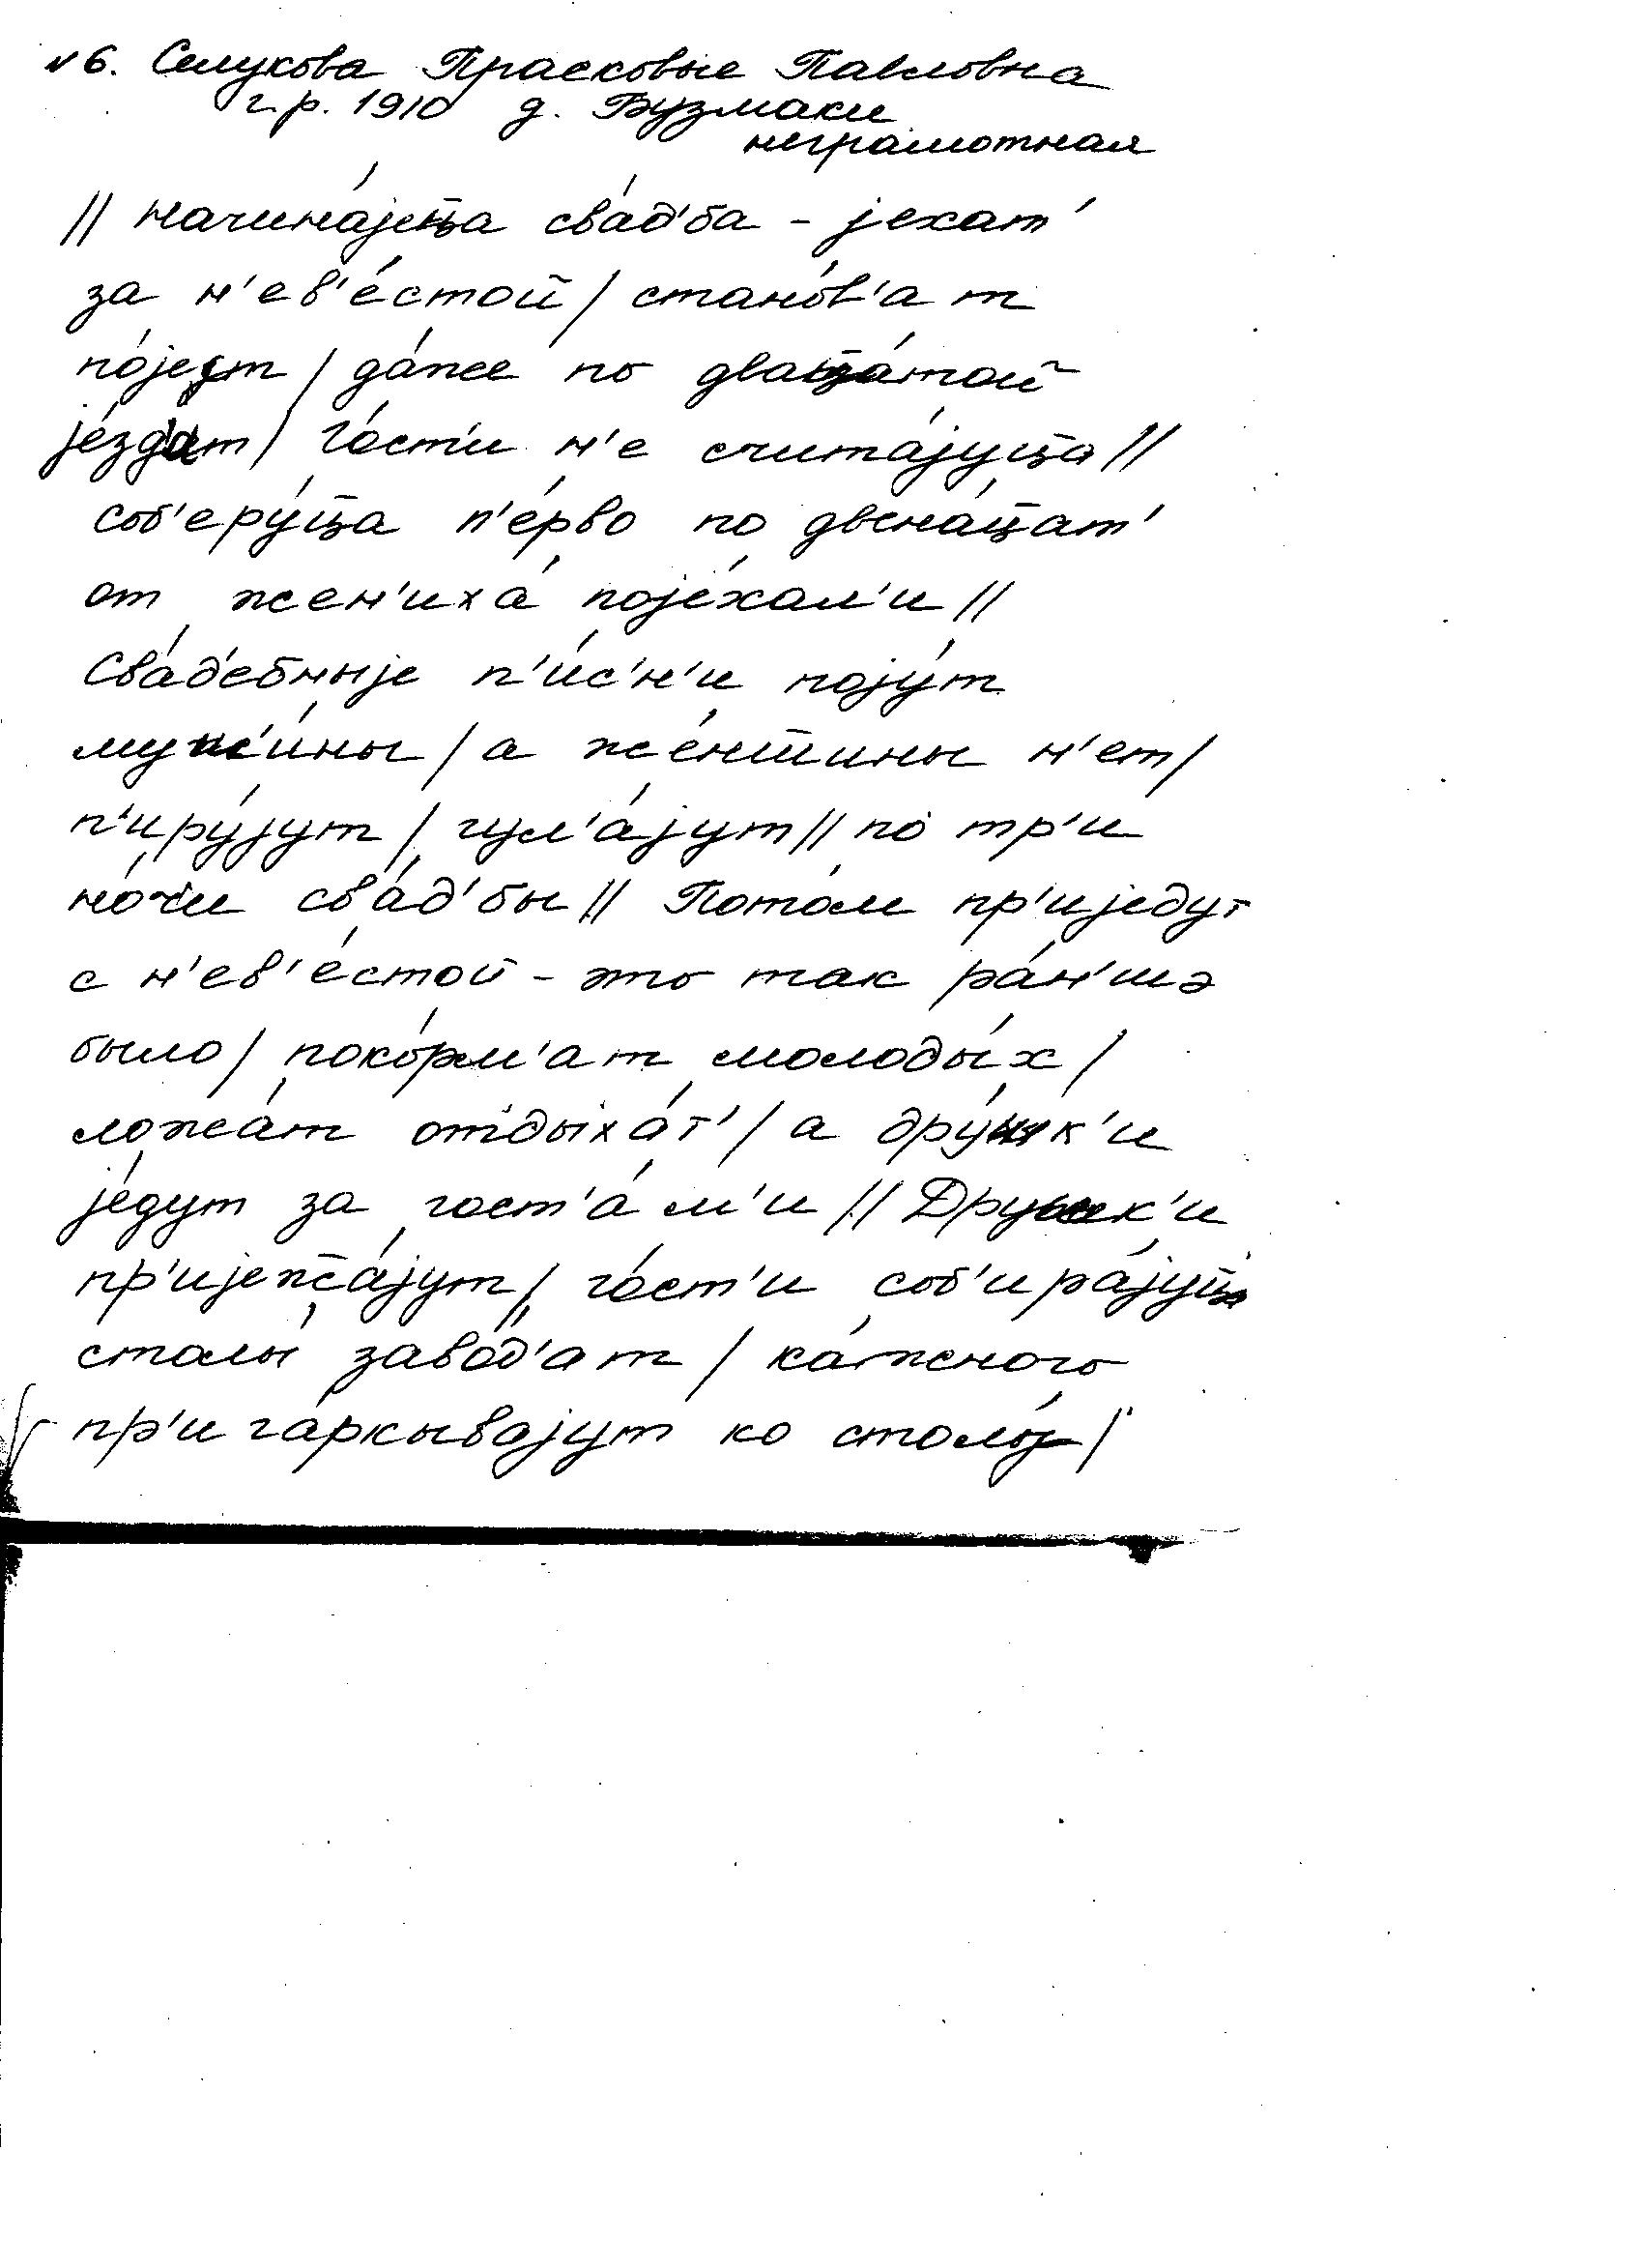 №6. Селукова Прасковье Павловна
г.р. 1910 д. Бузмаки
неграмотная
|| начина́јец̄а сва́д'ба – јехат'
за н'ев'е́стой / стано́в'ат
по́језт / да́же по двац̄а́той
је́зд'ат / го́ст'и н'е счита́јуц̄а ||
соб'еру́ц̄а п'е́рво по двена́ц̄ат'
от жен'иха́ поје́хал'и ||
Сва́д'ебныје п'и́с'н'и поју́т
муж'и́ны / а же́нш̄ины н'ет /
п'иру́јут / гул'а́јут || по́ тр'и
но́чи сва́д'бы || Пото́м пр'иједут
с н'ев'е́стой – это так ра́н'шэ
было / поко́рм'ат молоды́х /
ложа́т отдыха́т' / а дру́жк'и
је́дут за гост'а́м'и || Дружк'и
пр'ијежа́јут / го́ст'и соб'ира́јуц̄а
столы́ заво́д'ат / ка́жного
пр'ига́ркывајут ко столу́ /